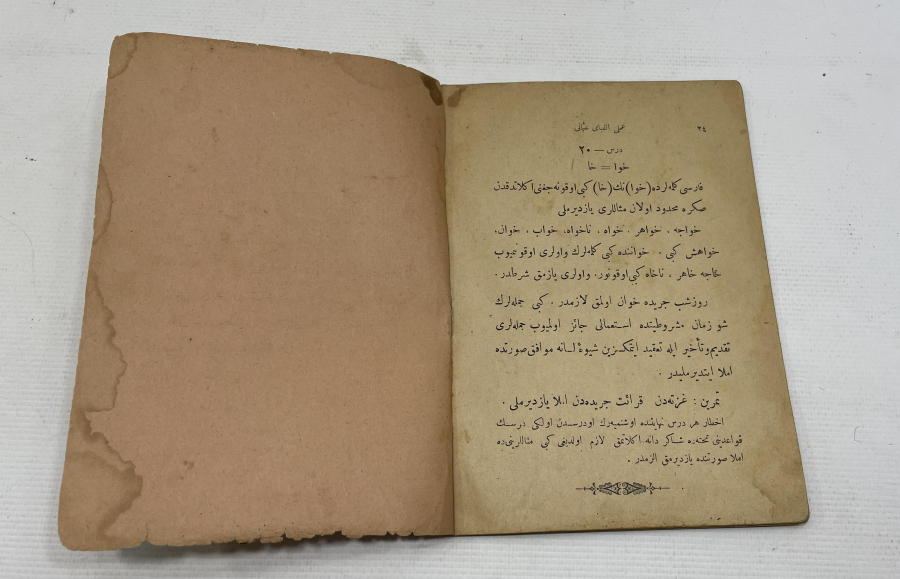 ٢٤ عملی الفبای عثمانی
درس — ٢٠
خوا = خا
فارسی كلمه لرده (خوا) نك (خا) كبی اوقونه جغنی اكلاتدقدن
صكره محدود اولان مثاللری یازدیرملی
خواجه ، خواهر ، خواه ، ناخواه، خواب ، خوان،
خواهش كبی . خواننده كبی كلمه لرك واولری اوقونمیوب
خاجه خاهر ، ناخاه كبی اوقونور. واولری یازمق شرطدر.
روزشب جریده خوان اولمق لازمدر . كبی جمله لرك
شو زمان مشروطیتده استعمالی جائز اولمیوب جمله لری
تقدیم وتأخیر ایله تعقید ایتمكسزین شیوهٔ لسانه موافق صورتده
املا ایتدیرملیدر .
تمرین : غزته دن قرائت جریده دن املا یازدیرملی .
اخطار هر درس نهایتنده اودرسدن اولكی درسك
قواعدینی تخته ده شاكر دانه اكلاتمق لازم اولدیغی كبی مثاللرینی ده
املا صورتنده یازدیرمق الزمدر .